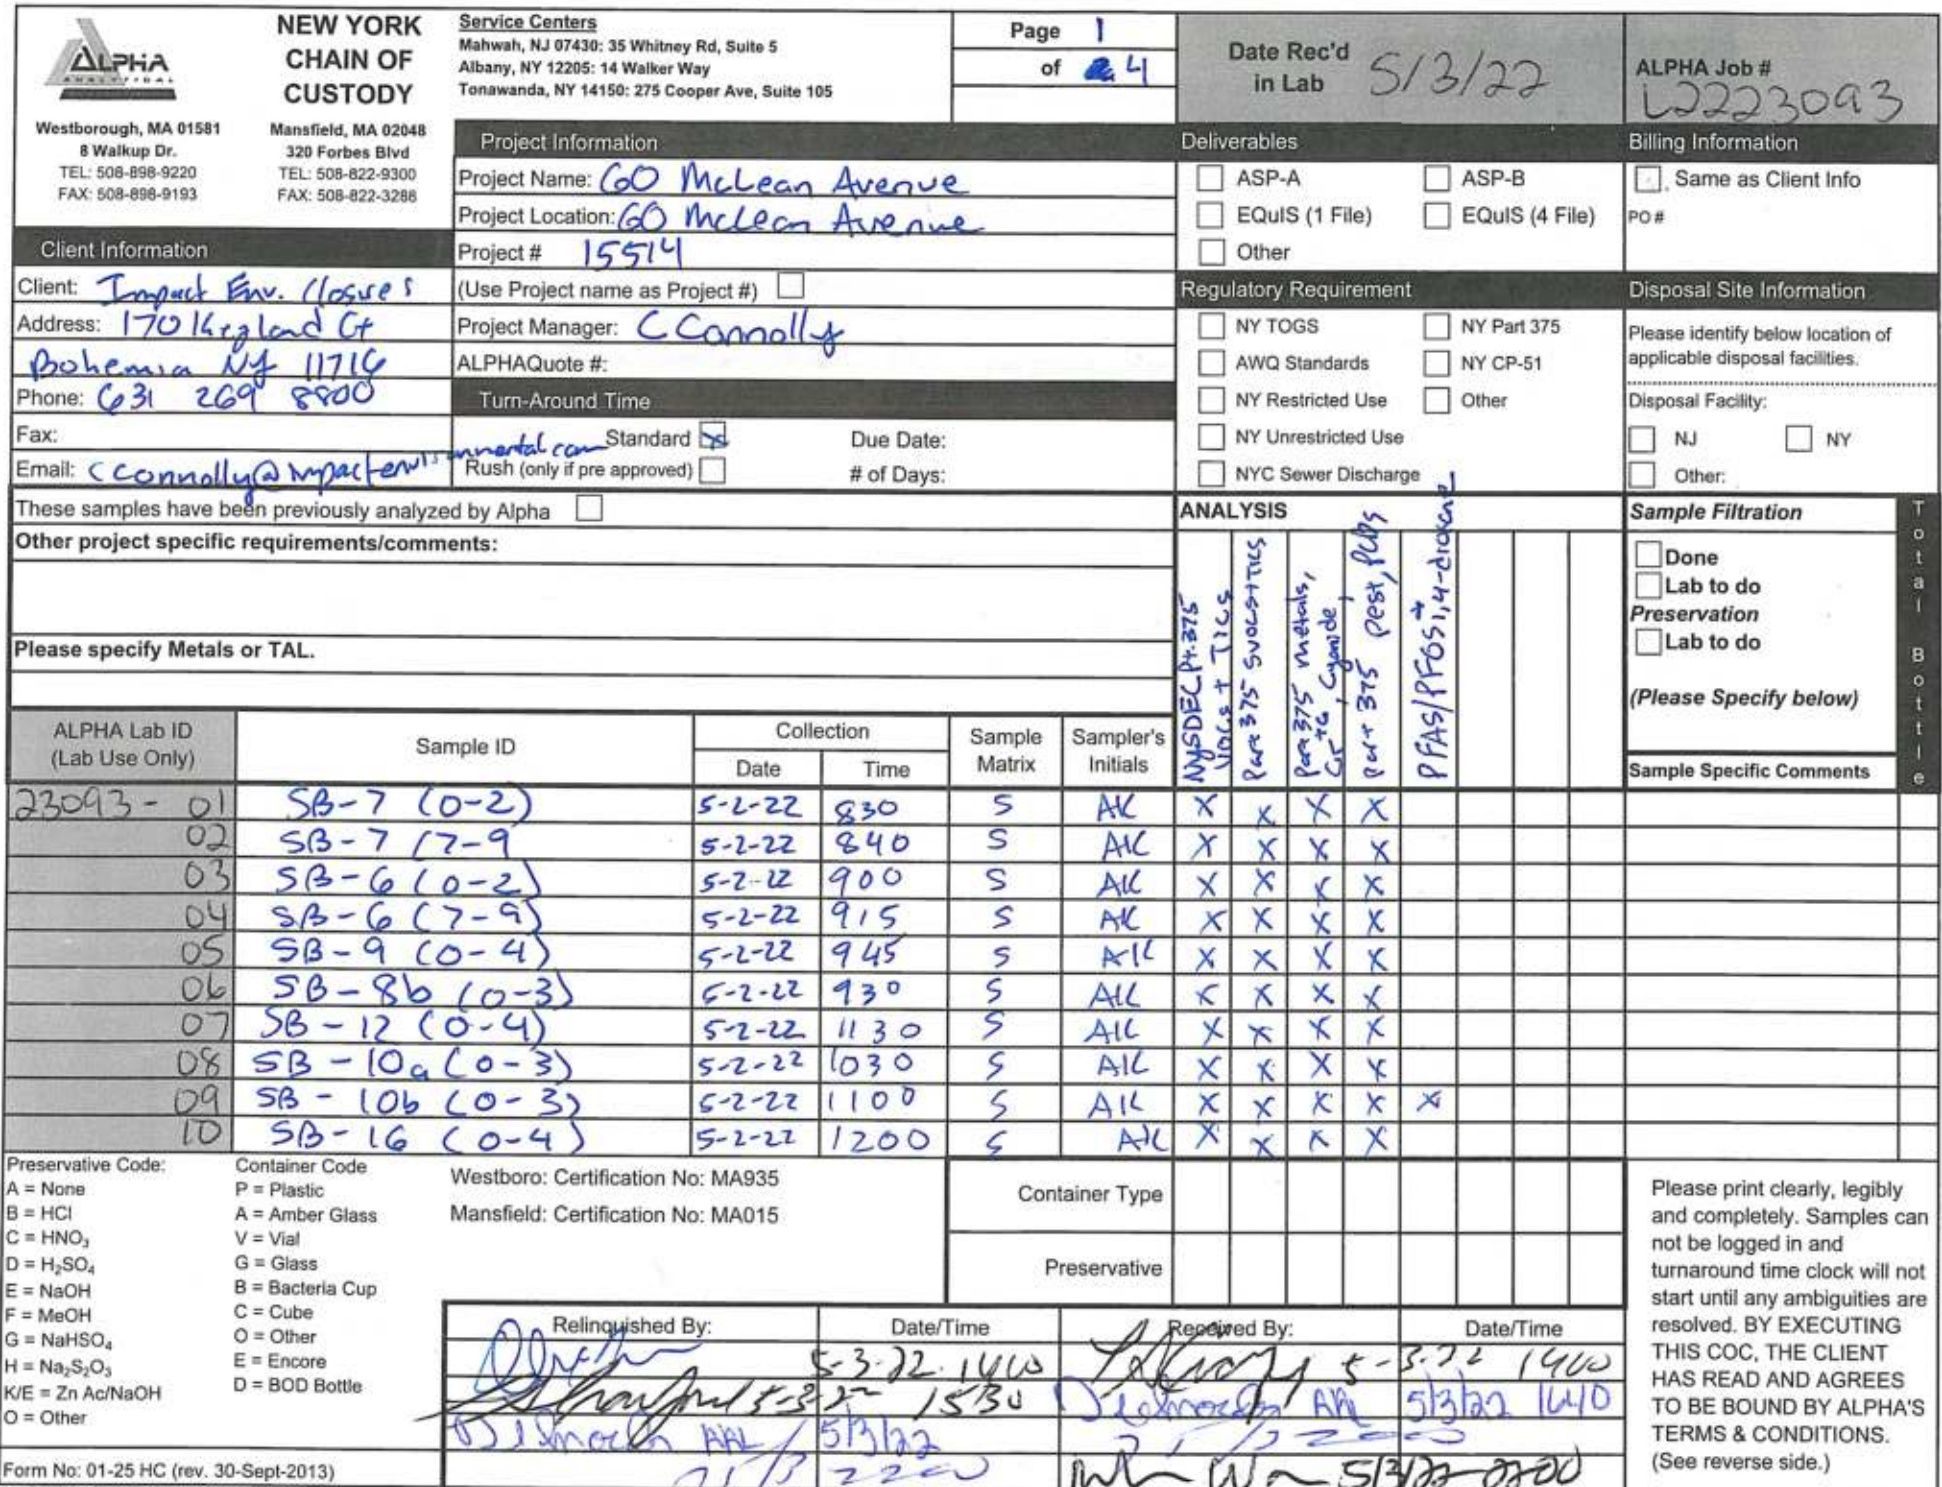 ALPHA
ANALYTICAL
NEW YORK
CHAIN OF
CUSTODY
Westborough, MA 01581
8 Walkup Dr.
TEL: 508-898-9220
FAX: 508-898-9193
Mansfield, MA 02048
320 Forbes Blvd
TEL: 508-822-9300
FAX: 508-822-3288
Service Centers
Mahwah, NJ 07430: 35 Whitney Rd, Suite 5
Albany, NY 12205: 14 Walker Way
Tonawanda, NY 14150: 275 Cooper Ave, Suite 105
Page 1
of 4
Date Rec'd
in Lab 5/3/22
ALPHA Job #
L2223093
Client Information
Client: Impact Env. Closures
Address: 170 Keyland Ct
Bohemia NY 11716
Phone: 631 269 8800
Fax:
Email: CConnolly@impactenvironmental.com
Project Information
Project Name: 60 McLean Avenue
Project Location: 60 McLean Avenue
Project # 15514
(Use Project name as Project #)
Project Manager: C Connolly
ALPHAQuote #:
Turn-Around Time
Standard X Due Date:
Rush (only if pre approved) # of Days:
Deliverables
ASP-A ASP-B
EQuIS (1 File) EQuIS (4 File)
Other
Regulatory Requirement
NY TOGS NY Part 375
AWQ Standards NY CP-51
NY Restricted Use Other
NY Unrestricted Use
NYC Sewer Discharge
Billing Information
Same as Client Info
PO #
Disposal Site Information
Please identify below location of
applicable disposal facilities.
Disposal Facility:
NJ NY
Other:
These samples have been previously analyzed by Alpha
Other project specific requirements/comments:
Please specify Metals or TAL.
ANALYSIS
NYSDEC Pt. 375
VOCs + TICs
Part 375 SVOCs+TICS
Part 375 metals,
Cr+6, Cyanide
part 375 pest, PCBs
PFAS/PFOS, 1,4-dioxane
Sample Filtration
Done
Lab to do
Preservation
Lab to do
(Please Specify below)
Sample Specific Comments
Total Bottle
ALPHA Lab ID
(Lab Use Only)
Sample ID
Collection
Date Time
Sample
Matrix
Sampler's
Initials
23093 - 01 SB-7 (0-2) 5-2-22 830 S AK X X X X
02 SB-7 (7-9 5-2-22 840 S AK X X X X
03 SB-6 (0-2) 5-2-22 900 S AK X X X X
04 SB-6 (7-9) 5-2-22 915 S AK X X X X
05 SB-9 (0-4) 5-2-22 945 S AK X X X X
06 SB-8b (0-3) 5-2-22 930 S AK X X X X
07 SB-12 (0-4) 5-2-22 1130 S AK X X X X
08 SB-10a (0-3) 5-2-22 1030 S AK X X X X
09 SB-10b (0-3) 5-2-22 1100 S AK X X X X X
10 SB-16 (0-4) 5-2-22 1200 S AK X X X X
Preservative Code:
A = None
B = HCl
C = HNO3
D = H2SO4
E = NaOH
F = MeOH
G = NaHSO4
H = Na2S2O3
K/E = Zn Ac/NaOH
O = Other
Container Code
P = Plastic
A = Amber Glass
V = Vial
G = Glass
B = Bacteria Cup
C = Cube
O = Other
E = Encore
D = BOD Bottle
Westboro: Certification No: MA935
Mansfield: Certification No: MA015
Container Type
Preservative
Relinquished By: Date/Time Received By: Date/Time
5-3-22 1410 5-3-22 1410
5-3-22 1530 AAL 5/3/22 1640
AAL 5/3/22
2200 5/3/22 2200
Please print clearly, legibly
and completely. Samples can
not be logged in and
turnaround time clock will not
start until any ambiguities are
resolved. BY EXECUTING
THIS COC, THE CLIENT
HAS READ AND AGREES
TO BE BOUND BY ALPHA'S
TERMS & CONDITIONS.
(See reverse side.)
Form No: 01-25 HC (rev. 30-Sept-2013)